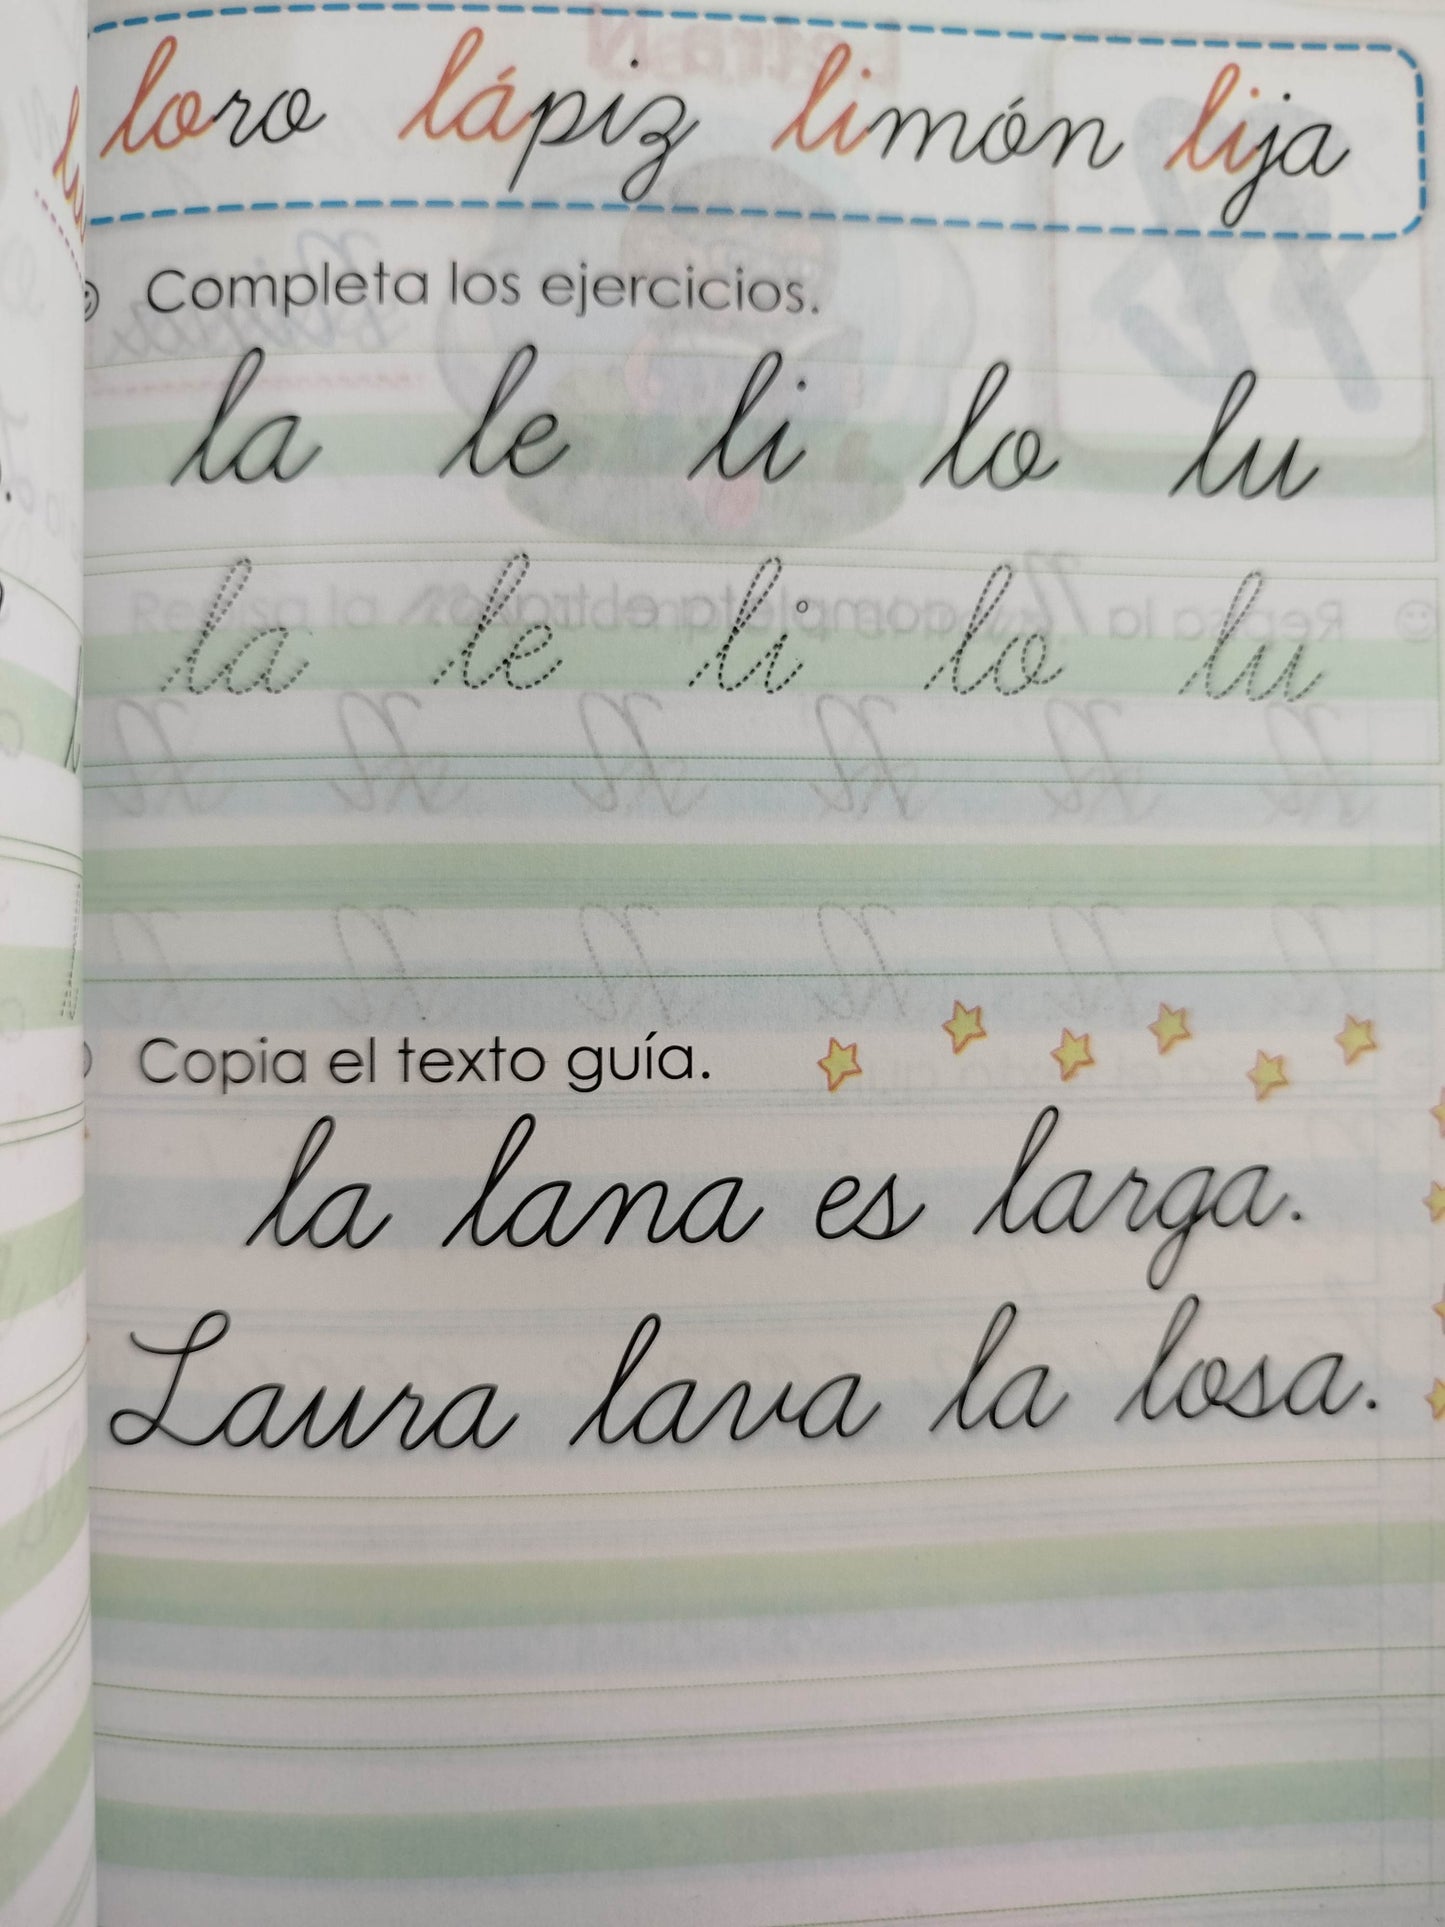 loro lápiz limón lija
Completa los ejercicios.
la le li lo lu
la le li lo lu
Copia el texto guía.
la lana es larga.
Laura lava la losa.